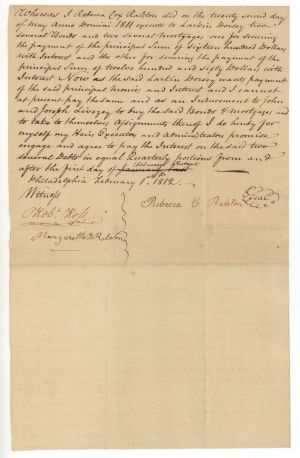 Whereas I Rebecca Cox Ralston did on the twenty second day
of May Anno Domini 1811 execute to Larkin Dorsey two
Several Bonds and two several mortgages one for securing
the payment of the principal Sum of Sixteen hundred Dollars
with Interest and the other for securing the payment of the
principal Sum of twelve hundred and sixty Dollars with
Interest Now as the said Larkin Dorsey wants payment
of the said principal monies and Interest and I cannot
at present pay the same and as an Inducement to John
and Joseph Livezey to buy the said Bonds & Mortgages and
to take to themselves Assignments thereof I do hereby for
myself my Heirs Executors and administrators promise
engage and agree to pay the Interest on the said two
several Debts in equal Quarterly portions from and
after the first day of February
Philadelphia February 1st. 1812.
Witness
Rebecca C Ralston
Seal
Robt. Ross
Margaretta Ralston